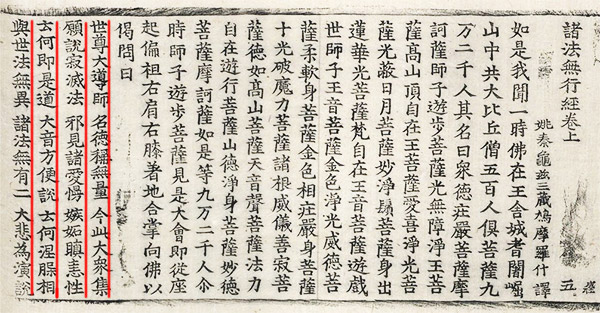 諸法無行經卷上
姚秦龜茲三藏鳩摩羅什譯 五
如是我聞一時佛在王舍城耆闍崛
山中共大比丘僧五百人俱菩薩九
万二千人其名曰衆德莊嚴菩薩摩
訶薩師子遊步菩薩光無障淨王菩
薩高山頂自在王菩薩愛喜淨光菩
薩光蔽日月菩薩妙淨鬚菩薩身出
蓮華光菩薩梵自在王音菩薩遊戲
世師子王意音菩薩金色淨光威德菩
薩柔軟身菩薩金色相莊嚴身菩薩
十光破魔力菩薩諸根威儀善寂菩
薩德如高山菩薩天音聲菩薩法力
自在遊行菩薩山德淨身菩薩妙德
菩薩摩訶薩如是等九万二千人尒
時師子遊步菩薩見是大會即從座
起偏袒右肩右膝著地合掌向佛以
偈問曰
世尊大導師 名德稱無量 今此大衆集
願說寂滅法 邪見諸愛慢 嫉妬瞋恚性
云何即是道 大音方便說 云何涅槃相
與世法無異 諸法無有二 大悲為演說